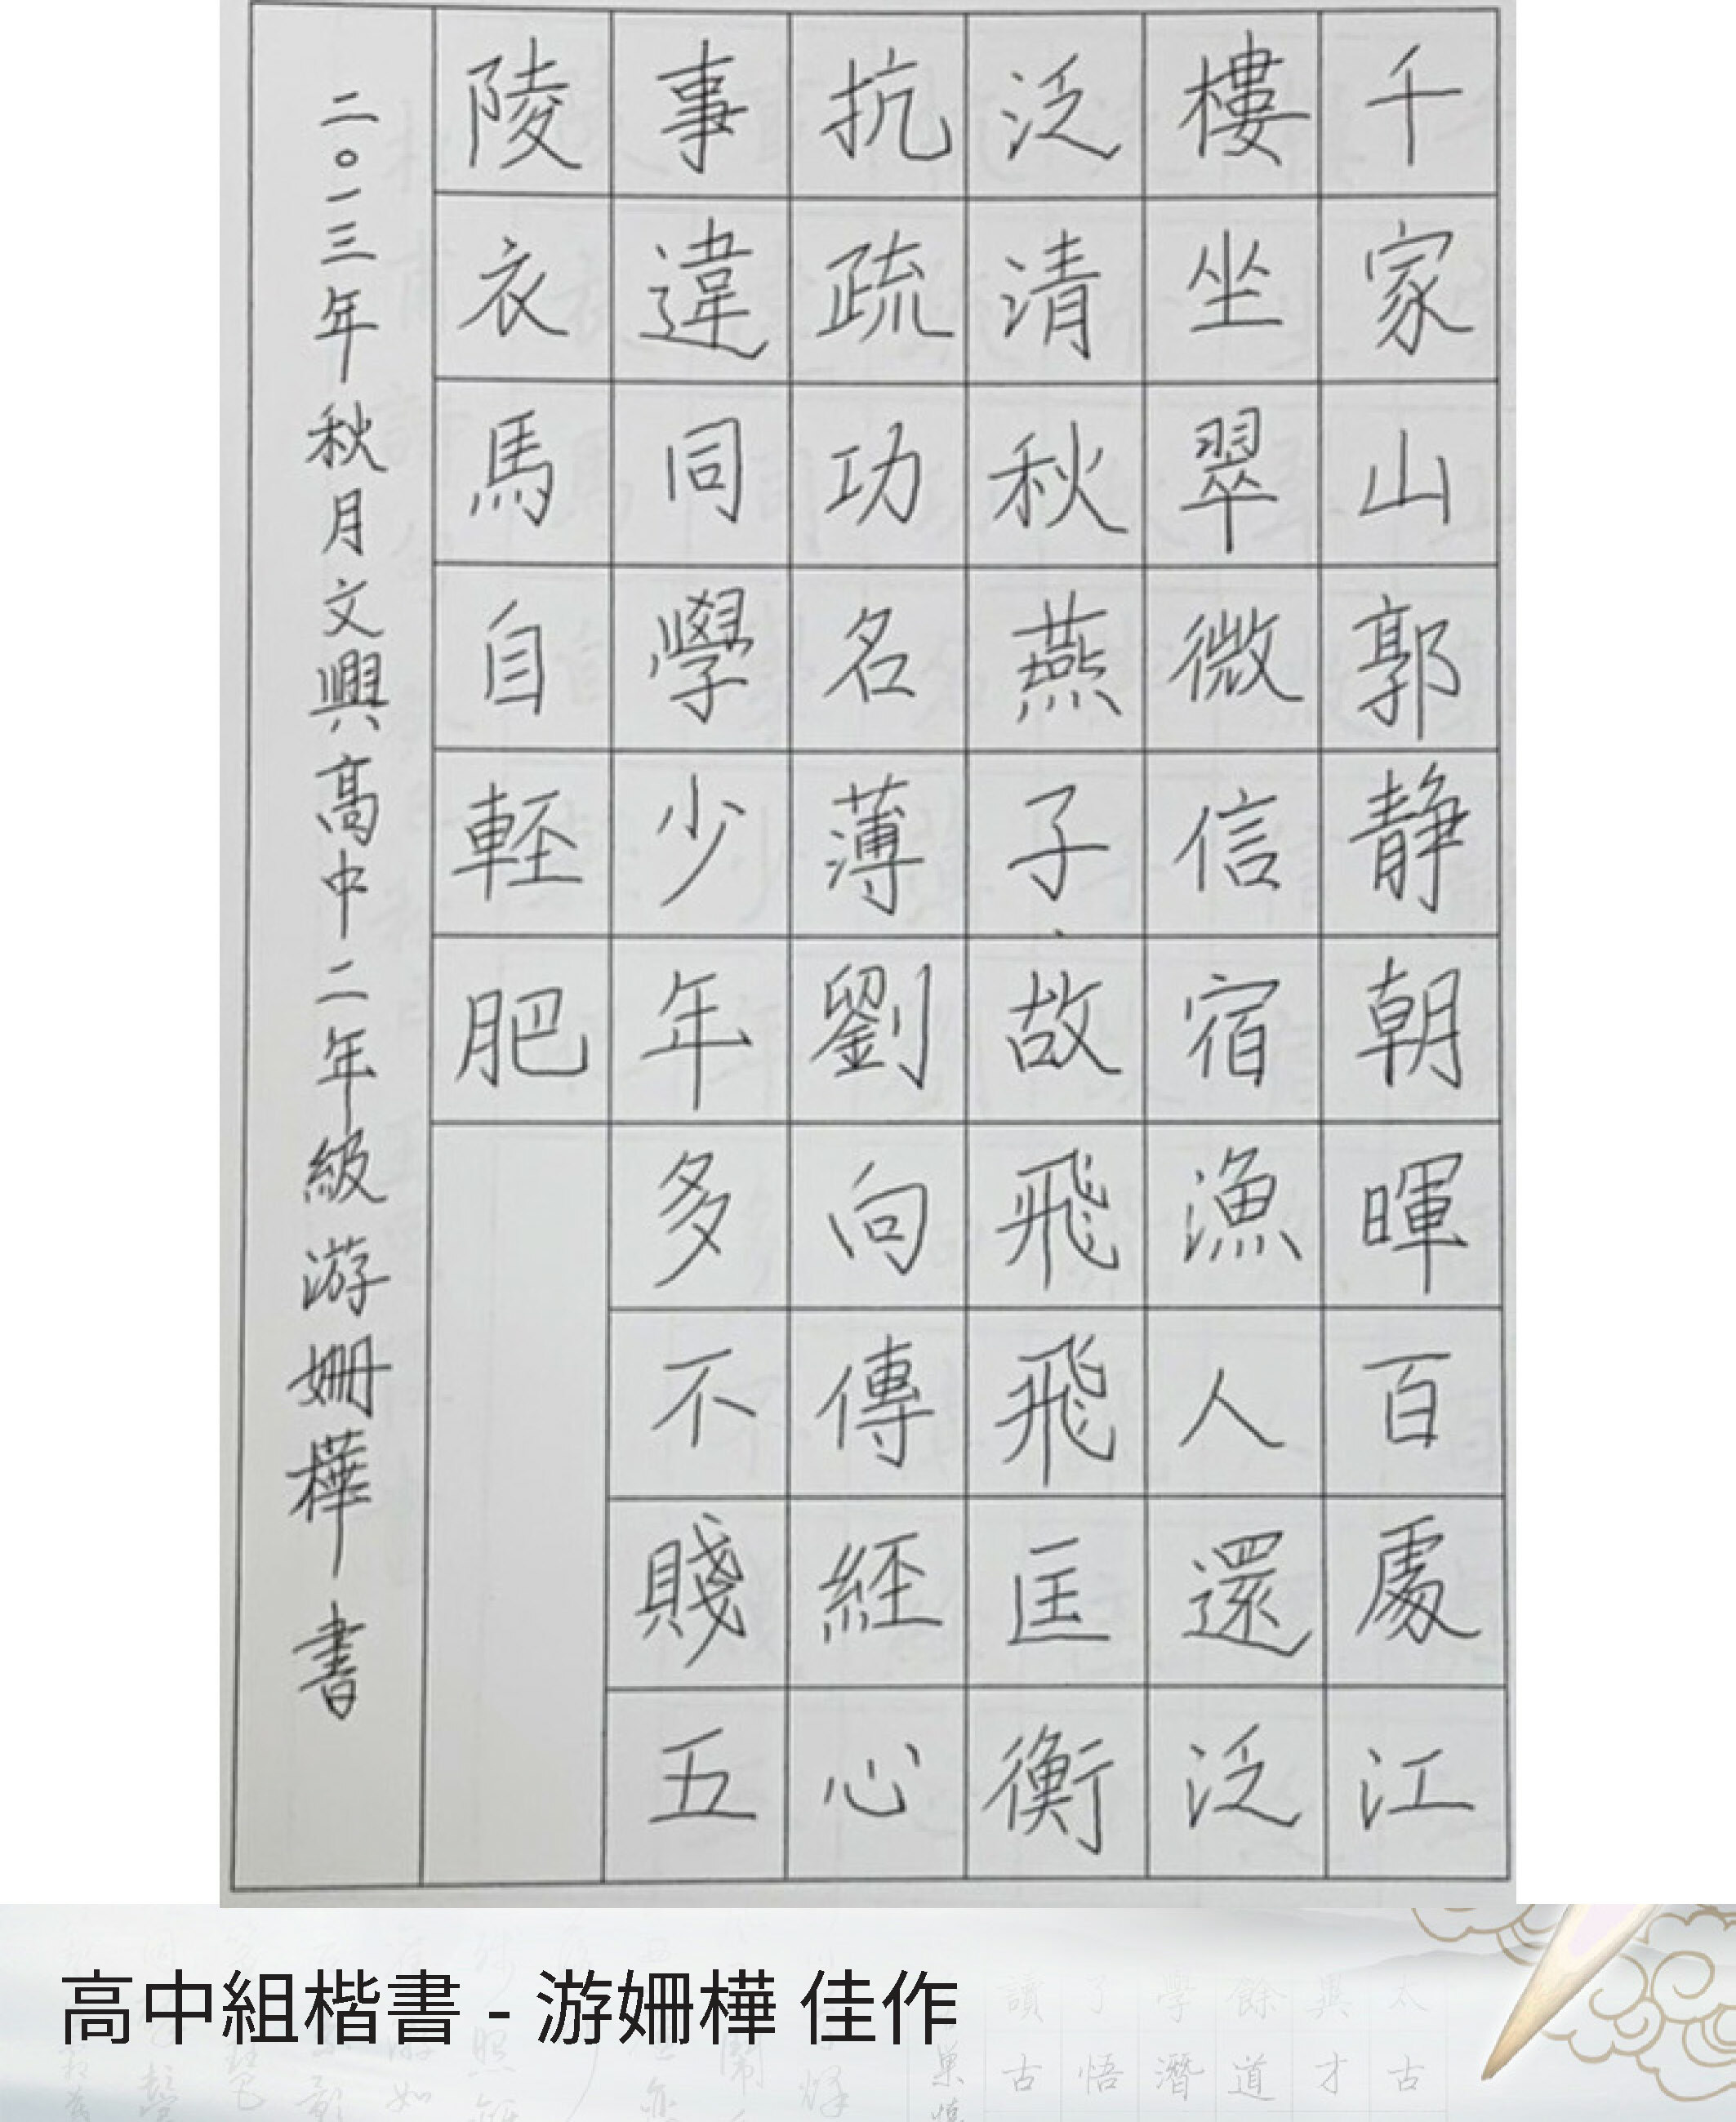 千家山郭静朝暉百處江
樓坐翠微信宿漁人還泛
泛清秋燕子故飛飛匡衡
抗疏功名薄劉向傳經心
事違同學少年多不賤五
陵衣馬自輕肥
二〇一三年秋月文興高中二年級游姍樺書
高中組楷書 - 游姍樺 佳作